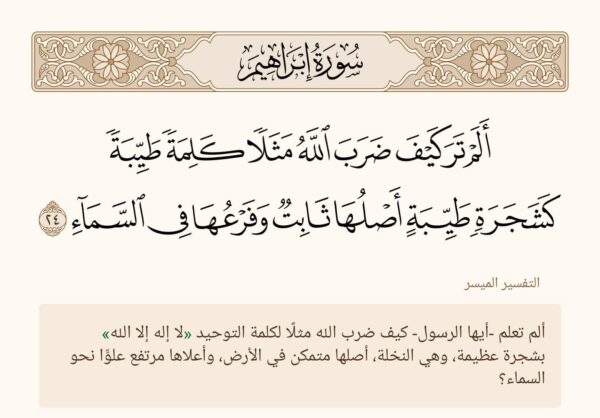 سُورَةُ إِبْرَاهِيمَ
أَلَمْ تَرَ كَيْفَ ضَرَبَ ٱللَّهُ مَثَلًا كَلِمَةً طَيِّبَةً
كَشَجَرَةٍ طَيِّبَةٍ أَصْلُهَا ثَابِتٌ وَفَرْعُهَا فِى ٱلسَّمَآءِ ٢٤
التفسير الميسر
ألم تعلم -أيها الرسول- كيف ضرب الله مثلًا لكلمة التوحيد «لا إله إلا الله»
بشجرة عظيمة، وهي النخلة، أصلها متمكن في الأرض، وأعلاها مرتفع علوًّا نحو
السماء؟